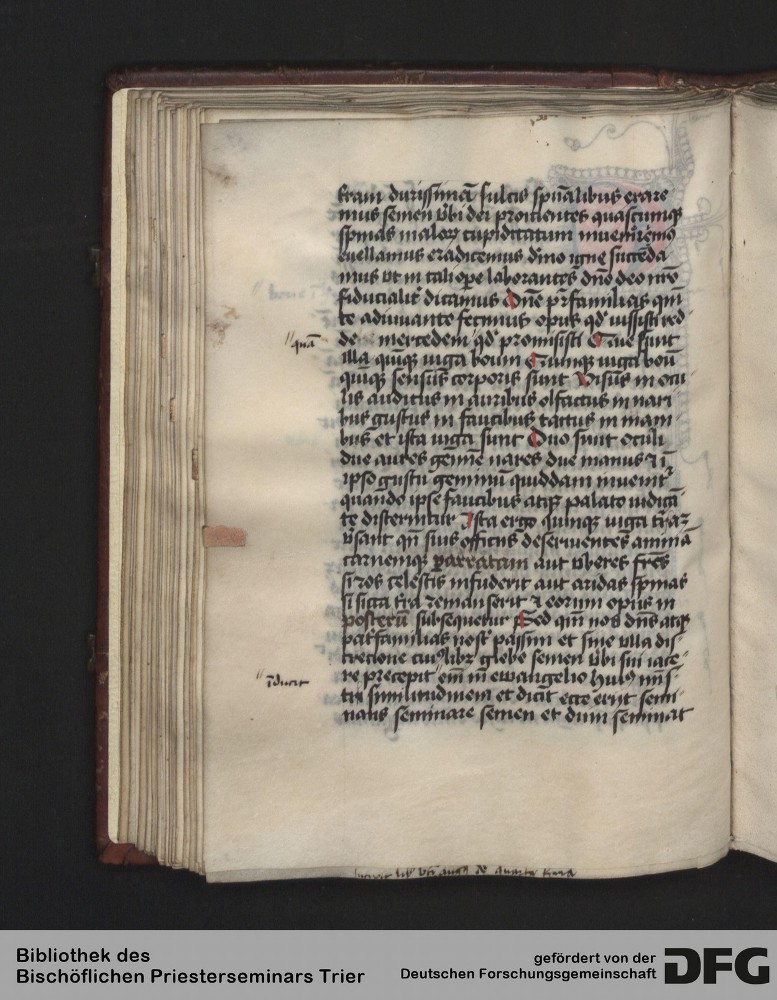 terram durissimā sulcis sp̄ualibus erare
mus semen v̄bi dei proicientes quascumqȝ
spinas maloꝝ cupiditatum inuenerimꝰ
euellamus eradicemus diuīo igne succēda
mus vt in tali oꝑe laborantes dn̄o deo nr̄o
fiducialit̄ dicamus Dn̄e pr̄familias qm̄
te adiuuante fecimus opus qd̓ iussisti red
de mercedem qd̓ promisisti Que sunt
quā
illa quīqȝ iuga boum Quinqȝ iuga boū
quīqȝ sensus corporis sunt Visus in ocu
lis auditus in auribus olfactus in nari
bus gustus in faucibus tactus in mani
bus et ista iuga sunt Duo sunt oculi
due aures gemīe nares due manus ⁊ ī
ipso gustu geminū quiddam inuenit᷑
quando ipse faucibus atqȝ palato iudicā
te discernitur Ista ergo quinqȝ iuga tr̄aꝫ
v̓sant qn̄ suis officiis deseruientes animā
carnemqȝ aut vberes fr̄es
si ros celestis infuderit aut aridas spinas
si sicca tr̄a remanserit ⁊ eorum opus in
posterū subsequentur Sed qm̄ nos dn̄s atqȝ
pat̓familias nost̓ passim et sine vlla dis
cretione cuiꝰlibꝫ glebe semen v̓bi sui iace
re precepit em̄ in ewangelio huiꝰ
īducit
similitudinem et dicit ecce exijt semi
nans seminare semen et dum seminat
Bibliothek des
Bischöflichen Priesterseminars Trier
gefördert von der
Deutschen Forschungsgemeinschaft
DFG